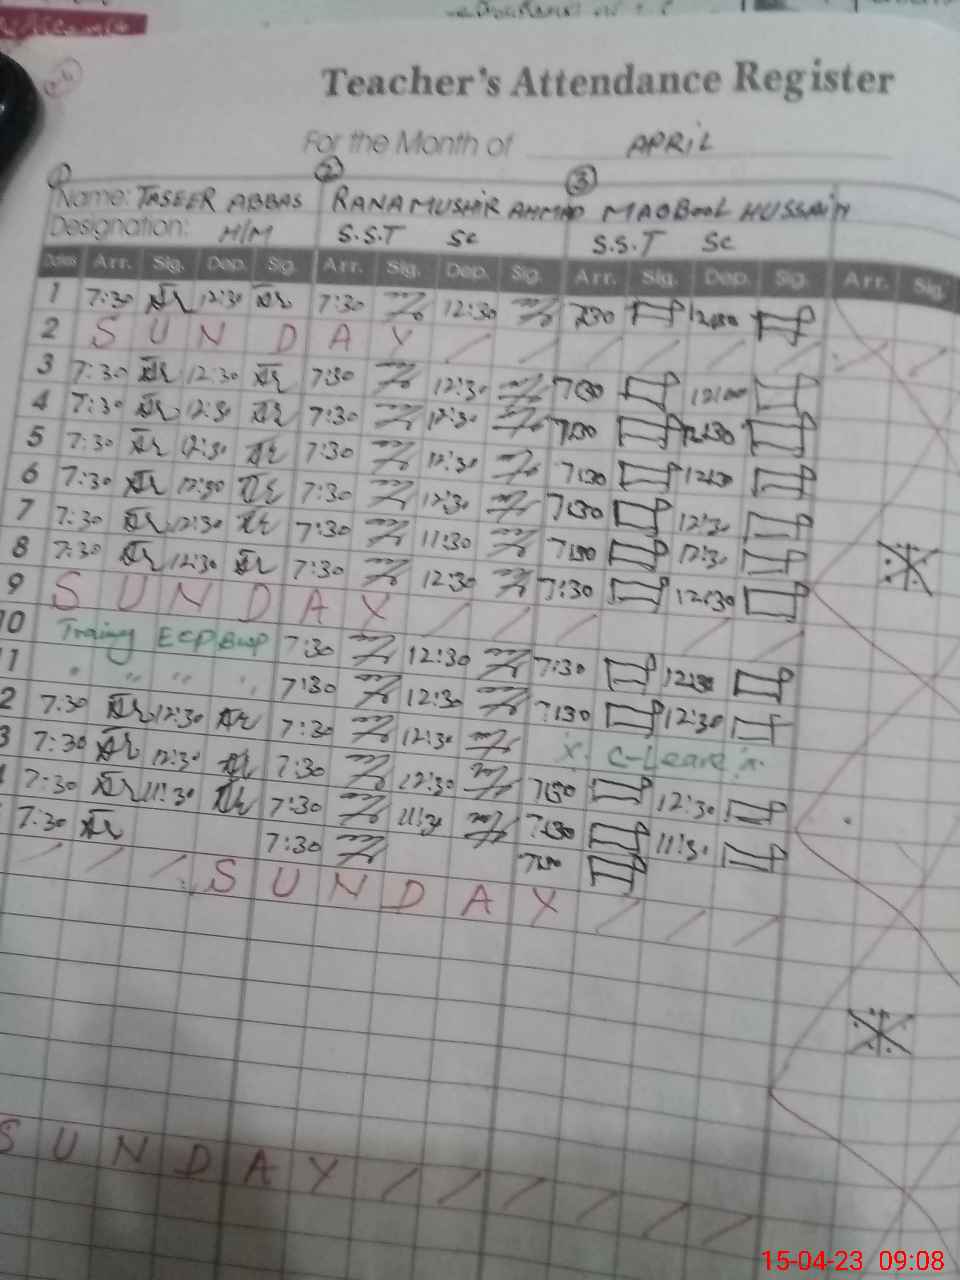 Teacher's Attendance Register
For the Month of APRIL
1 2 3
Name: TASEER ABBAS RANA MUSHIR AHMAD MAQBOOL HUSSAIN
Designation: H/M S.S.T Sc S.S.T Sc
Dates Arr. Sig. Dep. Sig. Arr. Sig. Dep. Sig. Arr. Sig. Dep. Sig. Arr. Sig.
1 7:30 12:30 7:30 12:30 7:30 12:30
2 S U N D A Y
3 7:30 12:30 7:30 12:30 7:30 12:00
4 7:30 12:30 7:30 12:30 7:30 12:30
5 7:30 12:30 7:30 12:30 7:30 12:30
6 7:30 12:30 7:30 12:30 7:30 12:30
7 7:30 12:30 7:30 11:30 7:30 12:30
8 7:30 12:30 7:30 12:30 7:30 12:30
9 S U N D A Y
10 Training 7:30 12:30 7:30 12:30
1 " " " " 7:30 12:30 7:30 12:30
2 7:30 12:30 7:30 12:30 x C-Leave x
3 7:30 12:30 7:30 12:30 7:30 12:30
7:30 11:30 7:30 11:30 7:30 11:30
7:30 7:30 7:30
S U N D A Y
S U N D A Y
15-04-23 09:08